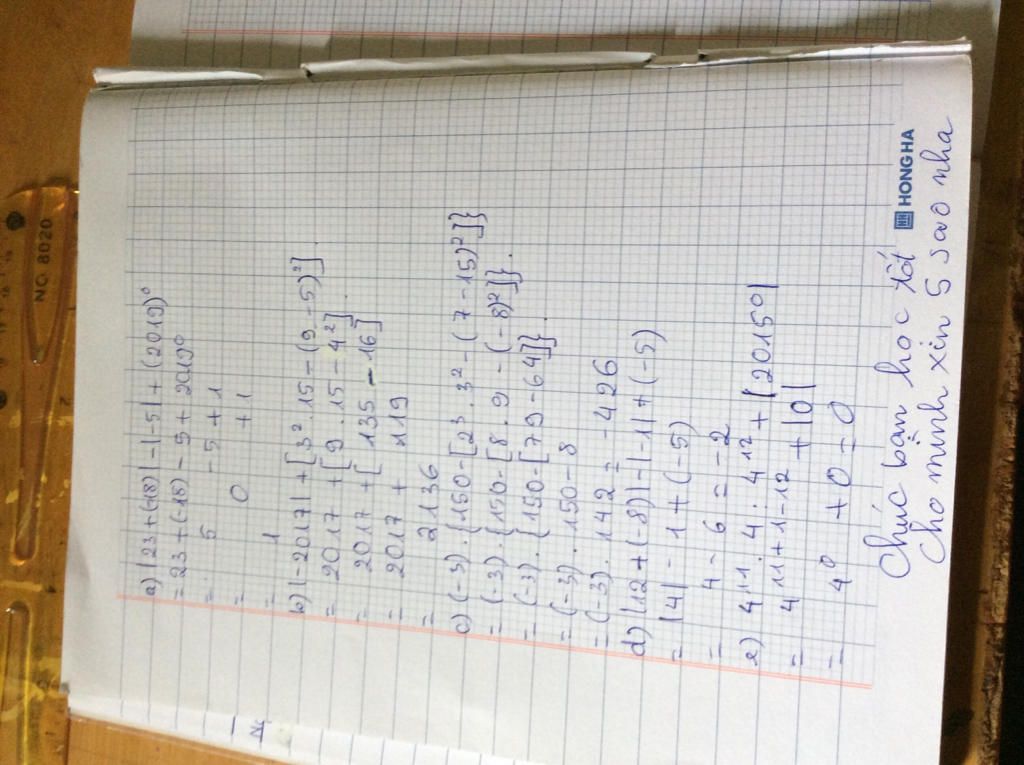 a) |23+(-18)|-|-5|+(2019)⁰
= 23+(-18)-5+2019⁰
= 5 -5+1
= 0 +1
= 1
b) |-2017|+[3².15-(9-5)²]
= 2017+[9.15-4²].
= 2017+[135-16]
= 2017+ 119
= 2136
c) (-3).{150-[2³.3²-(7-15)²]}
= (-3).{150-[8.9-(-8)²]}.
= (-3).{150-[79-64]}.
= (-3).150-8
= (-3).142= -426
d) |12+(-8)|-|-1|+(-5)
= |4|- 1+(-5)
= 4- 6 = -2
e) 4¹¹.4:4¹²+|2015⁰|
= 4¹¹⁺¹⁻¹²+|0|
= 4⁰ +0=0
HH HONG HA
Chúc bạn học tốt
Cho mình xin 5 sao nha
NO 8020